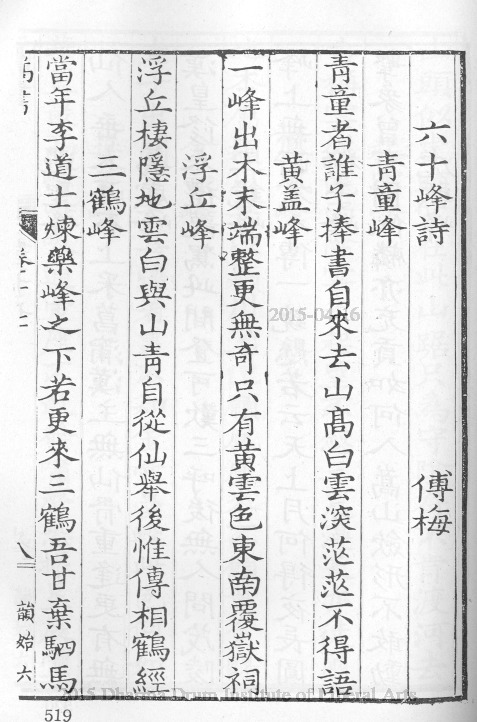 六十峰詩 傅梅
青童峰
青童者誰子捧書自來去山高白雲深茫茫不得語
黃盖峰
一峰出木末端整更無奇只有黃雲色東南覆嶽祠
浮丘峰
浮丘棲隱地雲白與山青自從仙舉後惟傳相鶴經
三鶴峰
當年李道士煉藥峰之下若更來三鶴吾甘棄駟馬
嵩書 卷十二 八 韻始六
519
2015-04-16
2015 Dharma Drum Institute of Liberal Arts